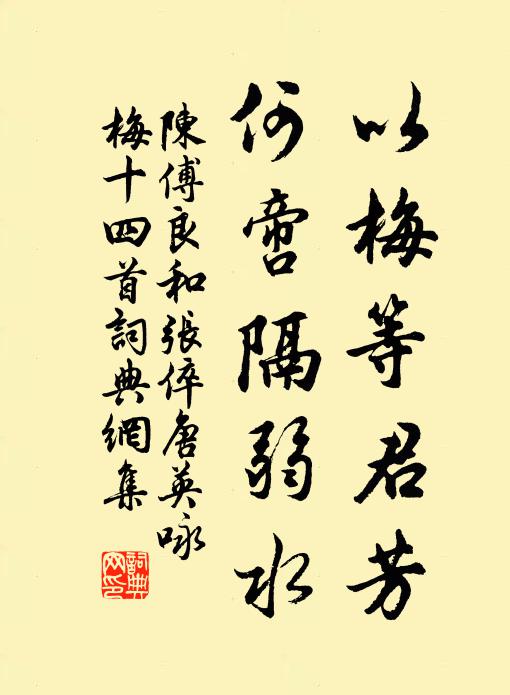 以梅等君芳
何啻隔弱水
陳傅良和張倅唐英咏
梅十四首詞典網集
詞典
网印